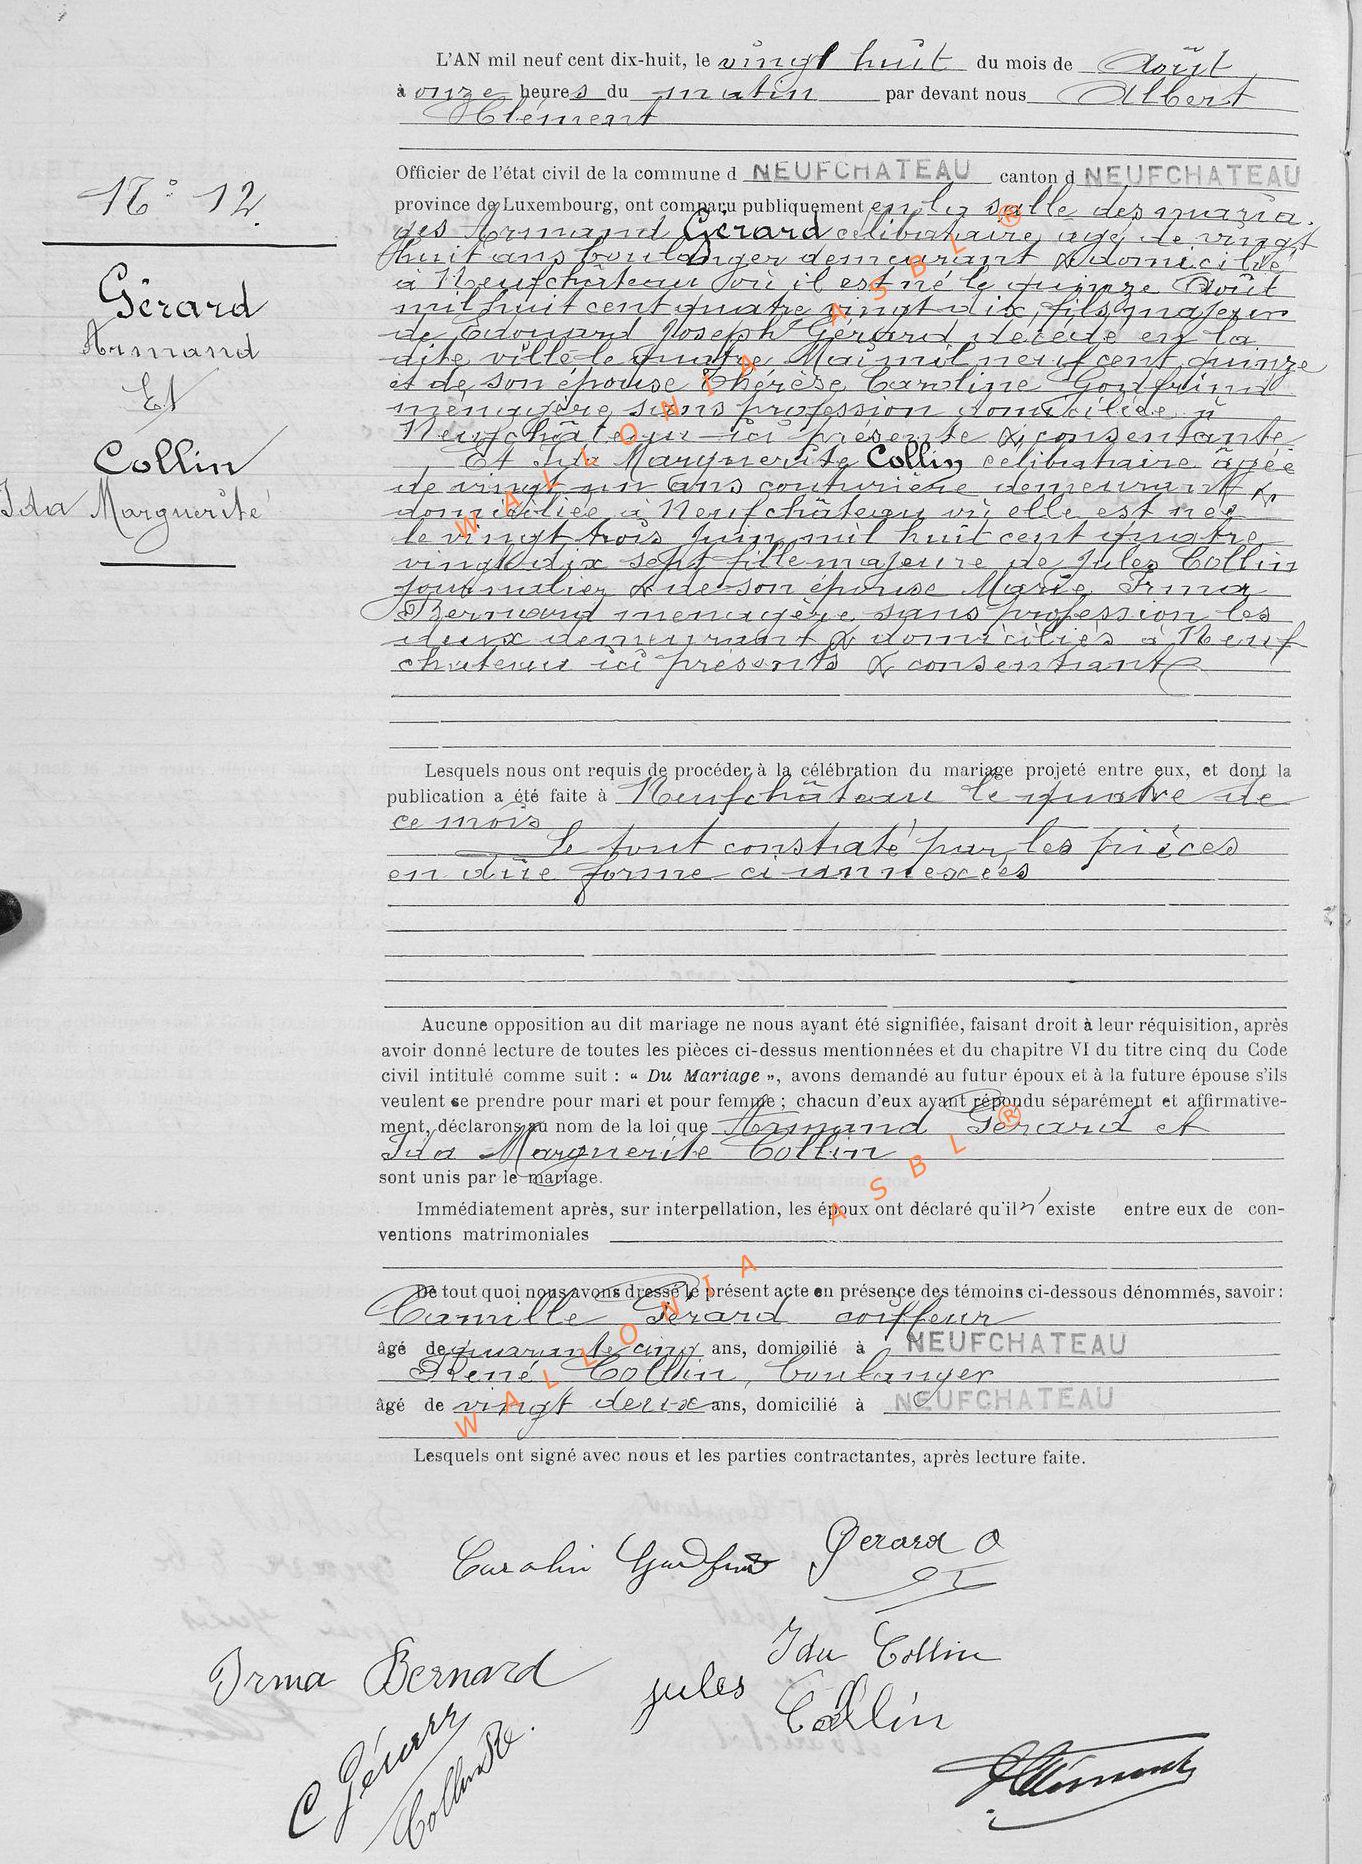 L'AN mil neuf cent dix-huit, le vingt huit du mois de Août
à onze heures du matin par devant nous Albert
Clément
Officier de l'état civil de la commune d NEUFCHATEAU canton d NEUFCHATEAU
province de Luxembourg, ont comparu publiquement en la salle des maria
ges Armand Gérard célibataire agé de vingt
huit ans boulanger demeurant & domicilié
à Neufchâteau où il est né le quinze Août
mil huit cent quatre vingt dix, fils majeur
de Edouard Joseph Gérard, décédé en la
dite ville le quatre Mai mil neuf cent quinze
et de son épouse Thérèse Caroline Godfrind
ménagère sans profession domiciliée à
Neufchâteau ici présente & consentante
Et Ida Marguerite Collin célibataire âgée
de vingt un ans couturière demeurant &
domiciliée à Neufchâteau où elle est née
le vingt trois Juin mil huit cent quatre
vingt dix sept fille majeure de Jules Collin
journalier & de son épouse Marie Irma
Bernard ménagère sans profession les
deux demeurant & domiciliés à Neuf
chateau ici présents & consentiant
N° 12
Gérard
Armand
Et
Collin
Ida Marguerite
Lesquels nous ont requis de procéder à la célébration du mariage projeté entre eux, et dont la
publication a été faite à Neufchâteau le quatre de
ce mois
Le tout constraté par les pièces
en dûe forme ci annexées
Aucune opposition au dit mariage ne nous ayant été signifiée, faisant droit à leur réquisition, après
avoir donné lecture de toutes les pièces ci-dessus mentionnées et du chapitre VI du titre cinq du Code
civil intitulé comme suit : « Du Mariage », avons demandé au futur époux et à la future épouse s'ils
veulent se prendre pour mari et pour femme ; chacun d'eux ayant répondu séparément et affirmative-
ment, déclarons au nom de la loi que Armand Gérard et
Ida Marguerite Collin
sont unis par le mariage.
Immédiatement après, sur interpellation, les époux ont déclaré qu'il n'existe entre eux de con-
ventions matrimoniales
De tout quoi nous avons dressé le présent acte en présence des témoins ci-dessous dénommés, savoir :
Camille Gérard coiffeur
âgé de quarante cinq ans, domicilié à NEUFCHATEAU
René Collin, boulanger
âgé de vingt deux ans, domicilié à NEUFCHATEAU
Lesquels ont signé avec nous et les parties contractantes, après lecture faite.
Carolin Godfrind Gerard A
Ida Collin
Irma Bernard jules Collin
C Gérard
Collin R.
A Clément
WALLONIA ASBL ®
WALLONIA ASBL ®